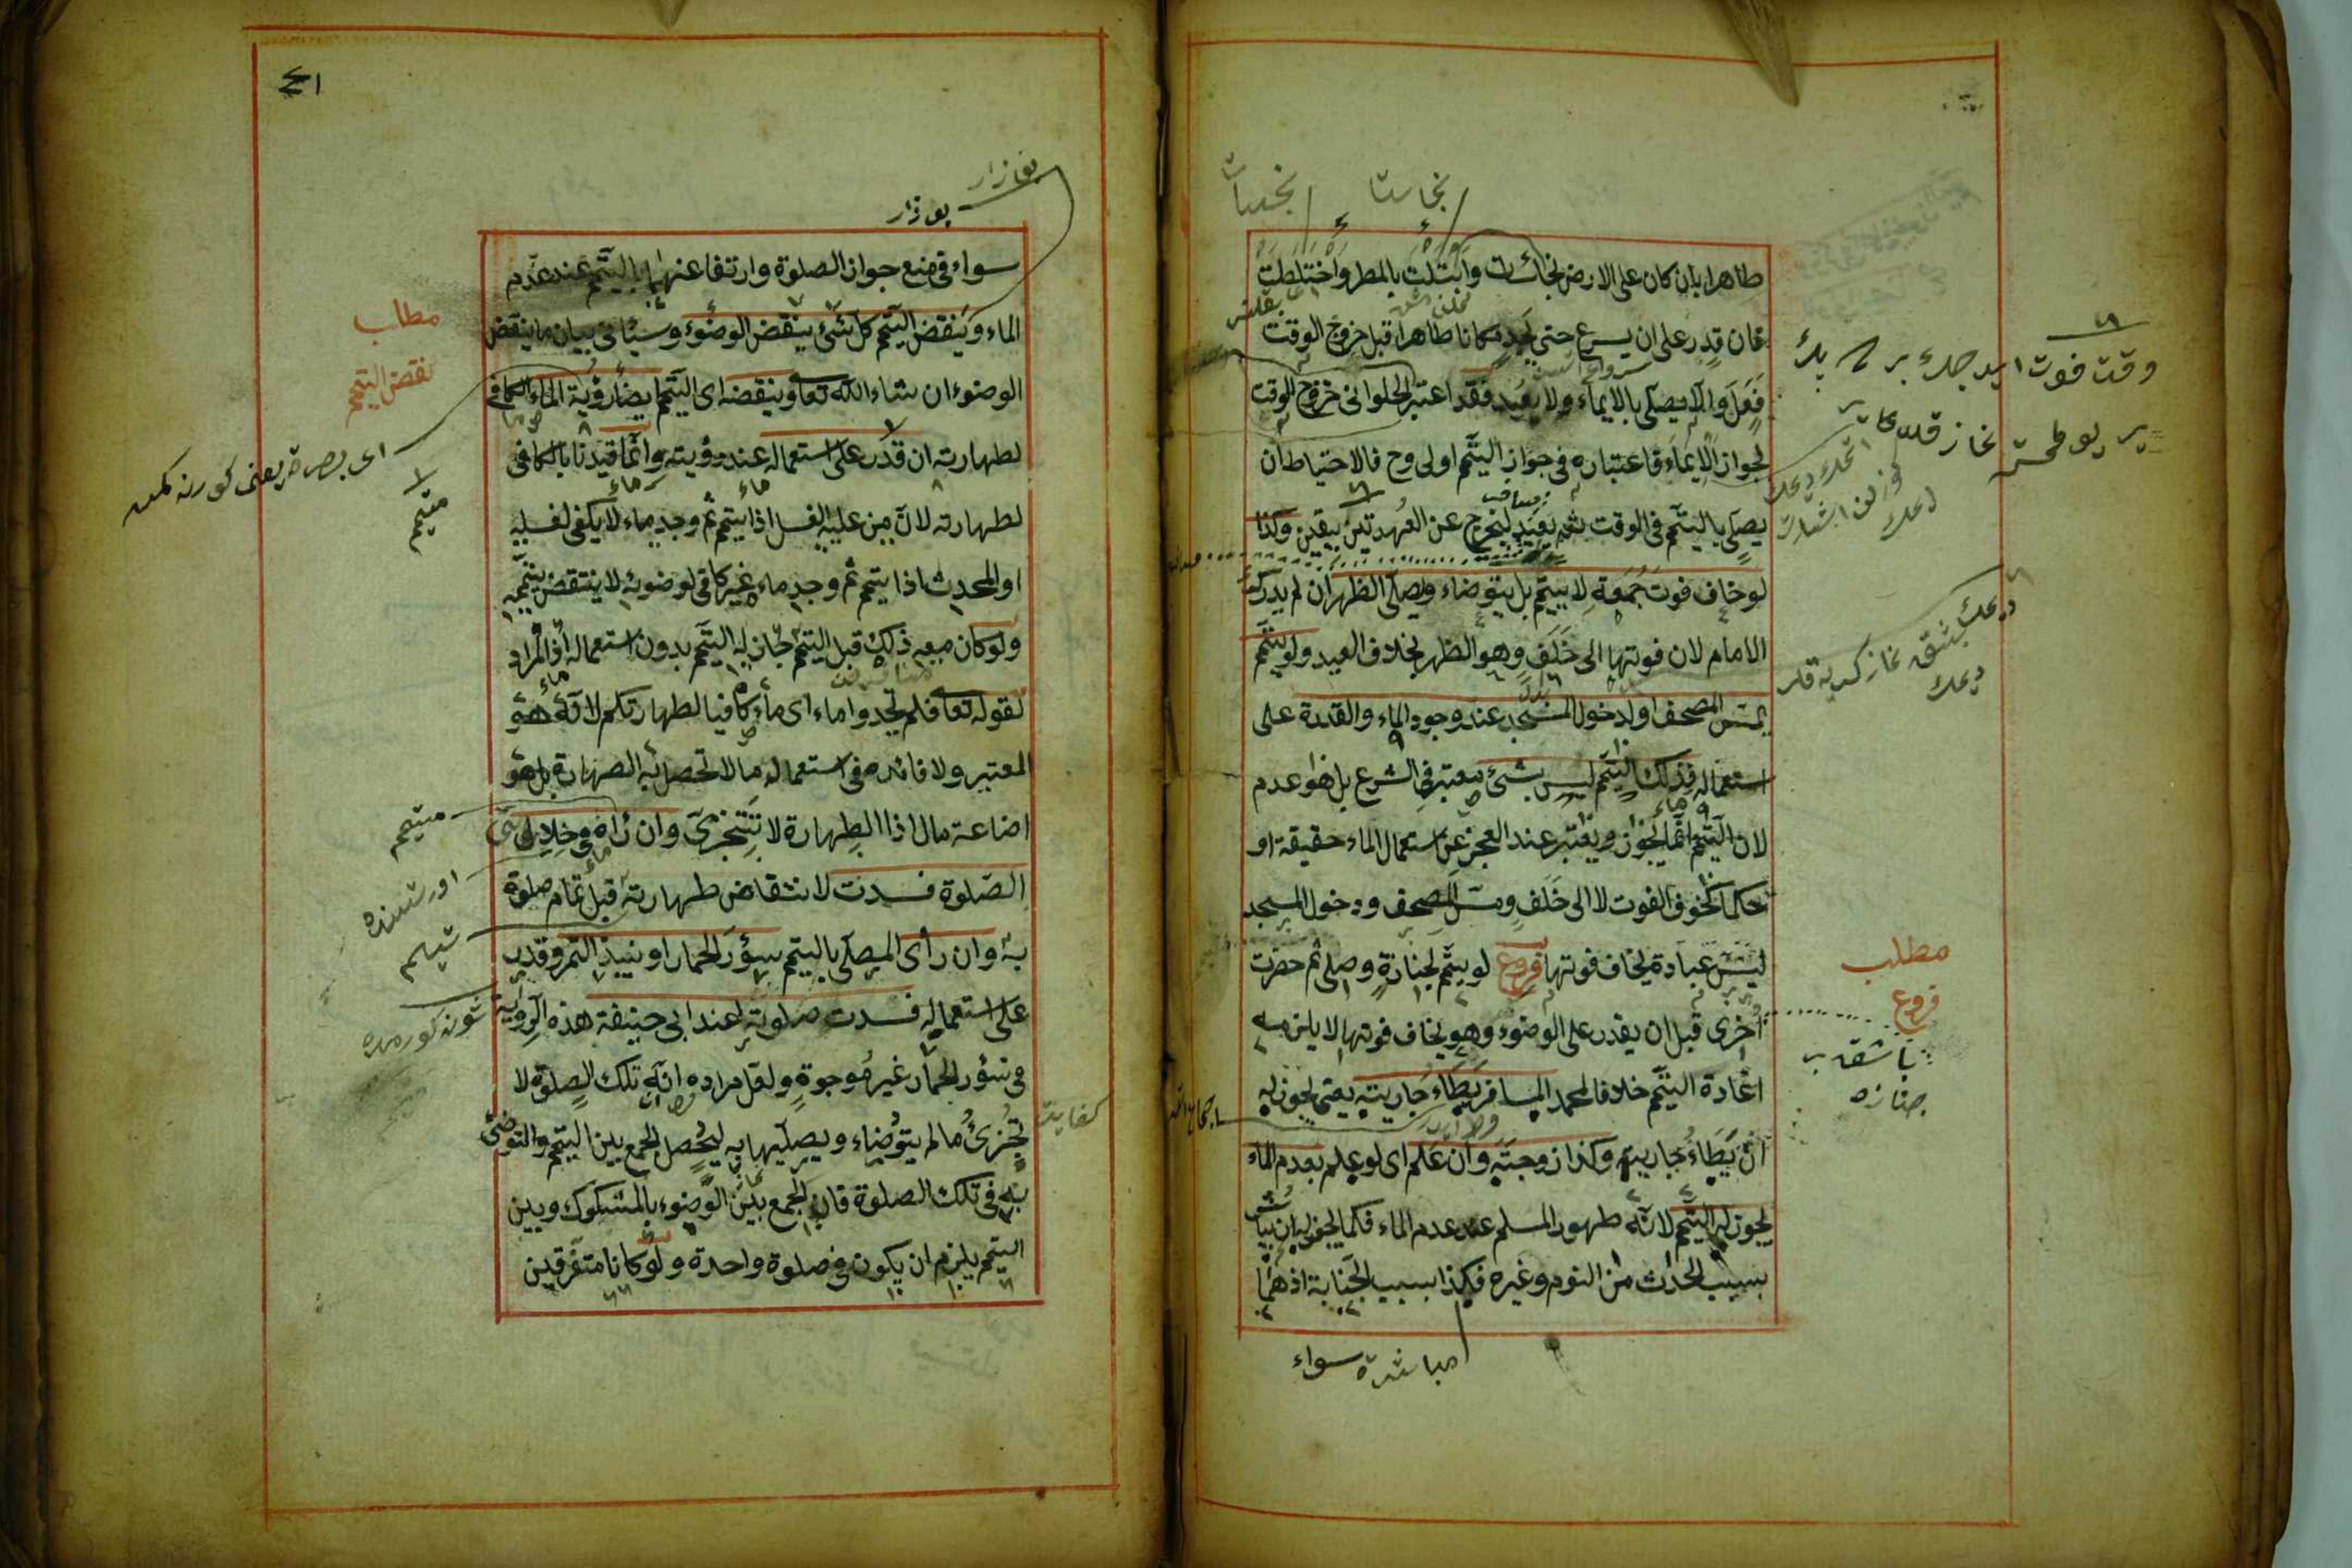 طاهرا بان كان على الارض نجاسات وابتلت بالمطر واختلطت
فان قدر على ان يسرع حتى يجد مكانا طاهرا قبل خروج الوقت
فعل والا يصلى بالايماء ولا يعيد فقد اعتبر الحلوانى خروج الوقت
لجواز الايماء فاعتباره فى جواز التيمم اولى وح فالاحتياط ان
يصلى بالتيمم فى الوقت ثم يعيد ليخرج عن العهدة بيقين وكذا
لو خاف فوت جمعة لا يتيمم بل يتوضاء ويصلى الظهر ان لم يدرك
الامام لان فوتها الى خلف وهو الظهر بخلاف العيد ولو تيمم
لمس المصحف او لدخول المسجد عند وجود الماء والقدرة على
استعماله فذلك التيمم ليس بشئ معتبر فى الشرع بل هو عدم
لان التيمم انما يجوز ويعتبر عند العجز عن استعمال الماء حقيقة او
حكما كخوف الفوت لا الى خلف ومس المصحف ودخول المسجد
ليس عبادة يخاف فوتها فروع لو تيمم لجنازة وصلى ثم حضرت
اخرى قبل ان يقدر على الوضوء وهو يخاف فوتها لا يلزمه
اعادة التيمم خلافا لمحمد المسافر يطاء جاريته يعنى يجوز له
ان يطاء جاريته وكذا زوجته وان علم اى لو علم بعدم الماء
يجوز له التيمم لانه طهور المسلم عند عدم الماء فكما يجوز له ان
بسبب الحدث من النوم وغيره فكذا بسبب الجنابة اذ هما
مباشرة سواء
مطلب
فروع
جنازه
٤١
سواء فى منع جواز الصلوة وارتفاعهما بالتيمم عند عدم
الماء وينقض التيمم كل شئ ينقض الوضوء وسيأتى بيان ما ينقض
الوضوء ان شاء الله تعا وينقضه اى التيمم ايضا رؤية الماء الكافى
لطهارته ان قدر على استعماله عند رؤيته وانما قيدنا بالكافى
لطهارته لان من عليه الغسل اذا يتيمم ثم وجد ماء لا يكفى لغسله
او المحدث اذا تيمم ثم وجد ماء غير كافى لوضوئه لا ينتقض تيممه
ولو كان معه ذلك قبل التيمم جاز له التيمم بدون استعماله اذ المراد
لقوله تعا فلم تجدوا ماء اى ماء كافيا لطهارتكم لانه هو
المعتبر ولا فائده فى استعماله ما لا تحصل به الطهارة بل هو
اضاعة مال اذا الطهارة لا تتجزى وان رآه فى خلال
الصلوة فسدت لانتقاض طهارته قبل تمام صلوة
به وان رأى المصلى بالتيمم سؤر الحمار او نبيذ التمر وقدر
على استعماله فسدت صلوته عند ابى حنيفة هذه الرواية
فى سؤر الحمار غير موجودة ولعل مراده ان تلك الصلوة لا
تجزئ ما لم يتوضاء ويصليها به ليحصل الجمع بين التيمم والتوضئ
به فى تلك الصلوة فان الجمع بين الوضوء بالمشكوك وبين
التيمم يلزم ان يكون فى صلوة واحدة ولو كانا متفرقين
مطلب
نقض التيمم
متيمم
متيمم